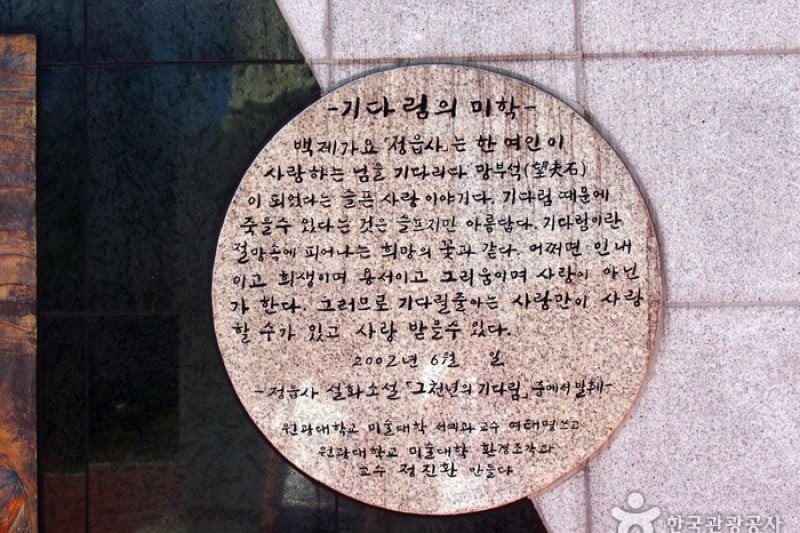 -기다림의 미학-
백제가요 '정읍사'는 한 여인이
사랑하는 님을 기다리다 망부석(望夫石)
이 되었다는 슬픈 사랑 이야기다. 기다림 때문에
죽을수 있다는 것은 슬프지만 아름답다. 기다림이란
절망속에 피어나는 희망의 꽃과 같다. 어쩌면 인내
이고 희생이며 용서이고 그리움이며 사랑이 아닌
가 한다. 그러므로 기다릴줄아는 사람만이 사랑
할 수가 있고 사랑 받을수 있다.
2002년 6월 일
-정읍사 설화소설 「그 천년의 기다림」 중에서 발췌-
원광대학교 미술대학 서예과 교수 여태명 쓰고
원광대학교 미술대학 환경조각과
교수 정진환 만들다
한국관광공사